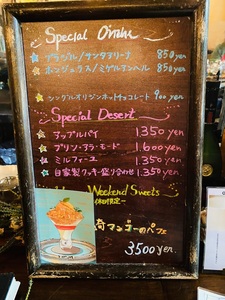 Special Drink
ブラジル/サンタアリーナ 850yen
ホンジュラス/ミゲルアンヘル 850yen
シングルオリジンホットチョコレート 900yen
Special Desert
アップルパイ 1350yen
プリン・アラ・モード 1.600yen
ミルフィーユ 1.350yen
自家製クッキー盛り合わせ 1.350yen
Weekend Sweets
マンゴーのパフェ
3500yen.